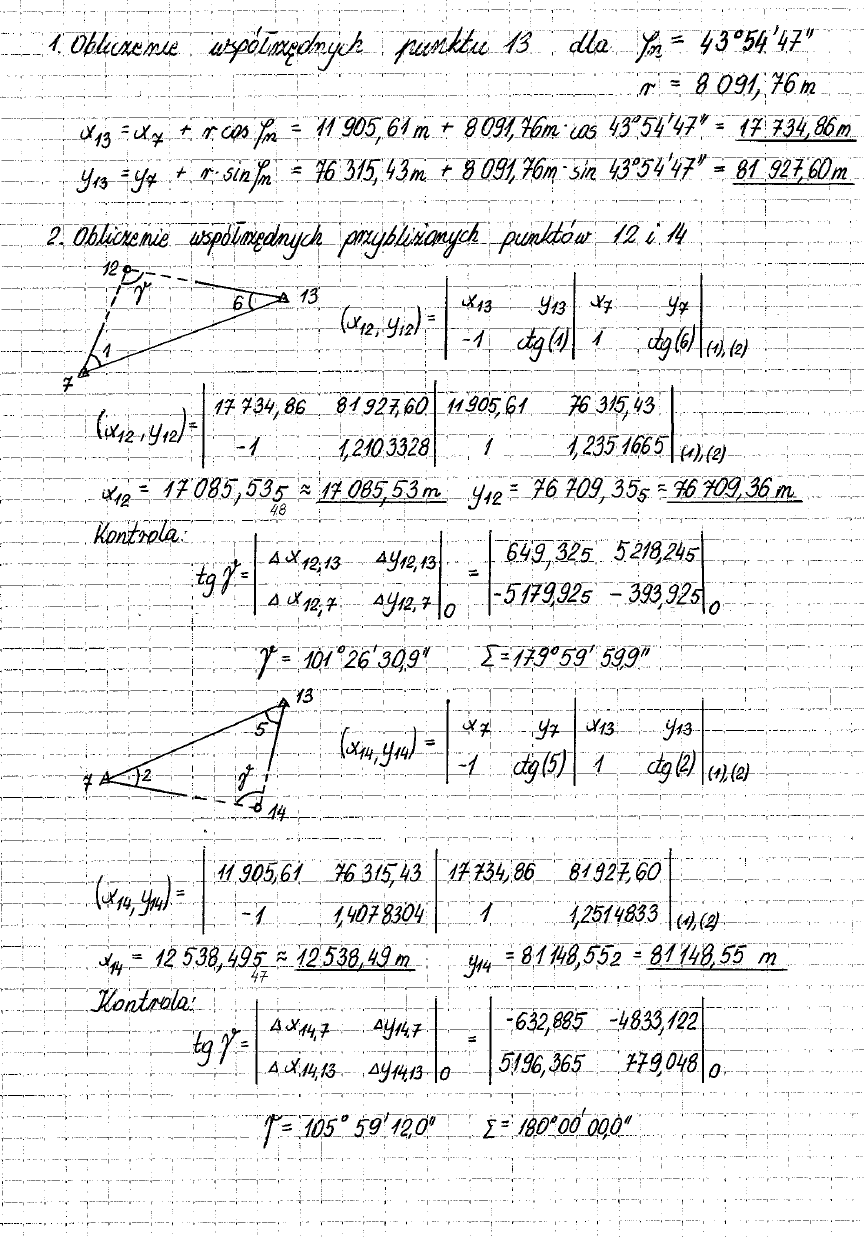 1. Obliczenie współrzędnych punktu 13 dla φₙ = 43°54'47"
r = 8 091,76 m
x₁₃ = x₇ + r cos φₙ = 11 905,61 m + 8 091,76 m · cos 43°54'47" = 17 734,86 m
y₁₃ = y₇ + r · sin φₙ = 76 315,43 m + 8 091,76 m · sin 43°54'47" = 81 927,60 m
2. Obliczenie współrzędnych przybliżonych punktów 12 i 14
12 γ 6 13
1
7
(x₁₂, y₁₂) = | x₁₃ y₁₃ | x₇ y₇ |
-1 ctg(1) | 1 ctg(6) | (1),(2)
(x₁₂, y₁₂) = | 17 734,86 81 927,60 | 11 905,61 76 315,43 |
-1 1,2103328 | 1 1,2351665 | (1),(2)
x₁₂ = 17 085,535 ≈ 17 085,53 m y₁₂ = 76 709,355 = 76 709,36 m
48
Kontrola:
tg γ = | Δx₁₂,₁₃ Δy₁₂,₁₃ | = | 649,325 5 218,245 |
| Δx₁₂,₇ Δy₁₂,₇ |₀ | -5179,925 -393,925 |₀
γ = 101°26'30,9" Σ = 179°59'59,9"
13
5
7 2 γ
14
(x₁₄, y₁₄) = | x₇ y₇ | x₁₃ y₁₃ |
-1 ctg(5) | 1 ctg(2) | (1),(2)
(x₁₄, y₁₄) = | 11 905,61 76 315,43 | 17 734,86 81 927,60 |
-1 1,4078304 | 1 1,2514833 | (1),(2)
x₁₄ = 12 538,495 ≈ 12 538,49 m y₁₄ = 81 148,552 = 81 148,55 m
47
Kontrola:
tg γ = | Δx₁₄,₇ Δy₁₄,₇ | = | -632,885 -4833,122 |
| Δx₁₄,₁₃ Δy₁₄,₁₃ |₀ | 5196,365 779,048 |₀
γ = 105°59'12,0" Σ = 180°00'00,0"